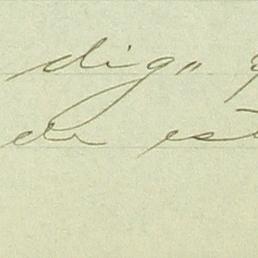 dig"
de est